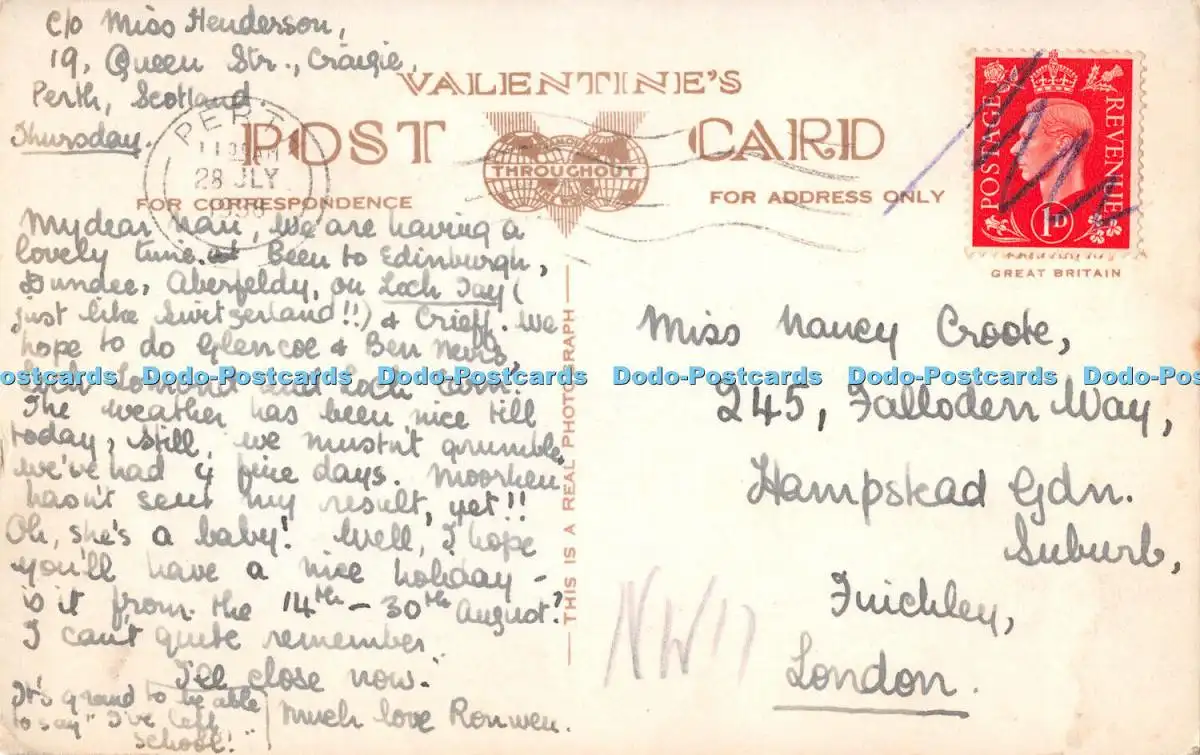 c/o Miss Henderson,
19, Queen Str., Craigie,
Perth, Scotland.
Thursday.
VALENTINE'S
POST CARD
THROUGHOUT
FOR CORRESPONDENCE
FOR ADDRESS ONLY
PERTH
28 JLY
1938
POSTAGE
REVENUE
1D
GREAT BRITAIN
My dear Nan, We are having a
lovely time. Been to Edinburgh,
Dundee, Aberfeldy, on Loch Tay (
just like Switzerland!!) & Crieff. We
hope to do Glencoe & Ben Nevis,
Lomond and Loch
The weather has been nice till
today, still, we mustn't grumble,
we've had 4 fine days. Moorhen
hasn't sent my result, yet!!
Oh, she's a baby! Well, I hope
you'll have a nice holiday -
is it from the 14th - 30th August?
I can't quite remember.
I'll close now.
Much love Ronwen.
It's grand to be able
to say "I've left
school!"
THIS IS A REAL PHOTOGRAPH
Miss Nancy Croote,
245, Falloden Way,
Hampstead Gdn.
Suburb,
Finchley,
London.
NW11
Dodo-Postcards Dodo-Postcards Dodo-Postcards Dodo-Postcards